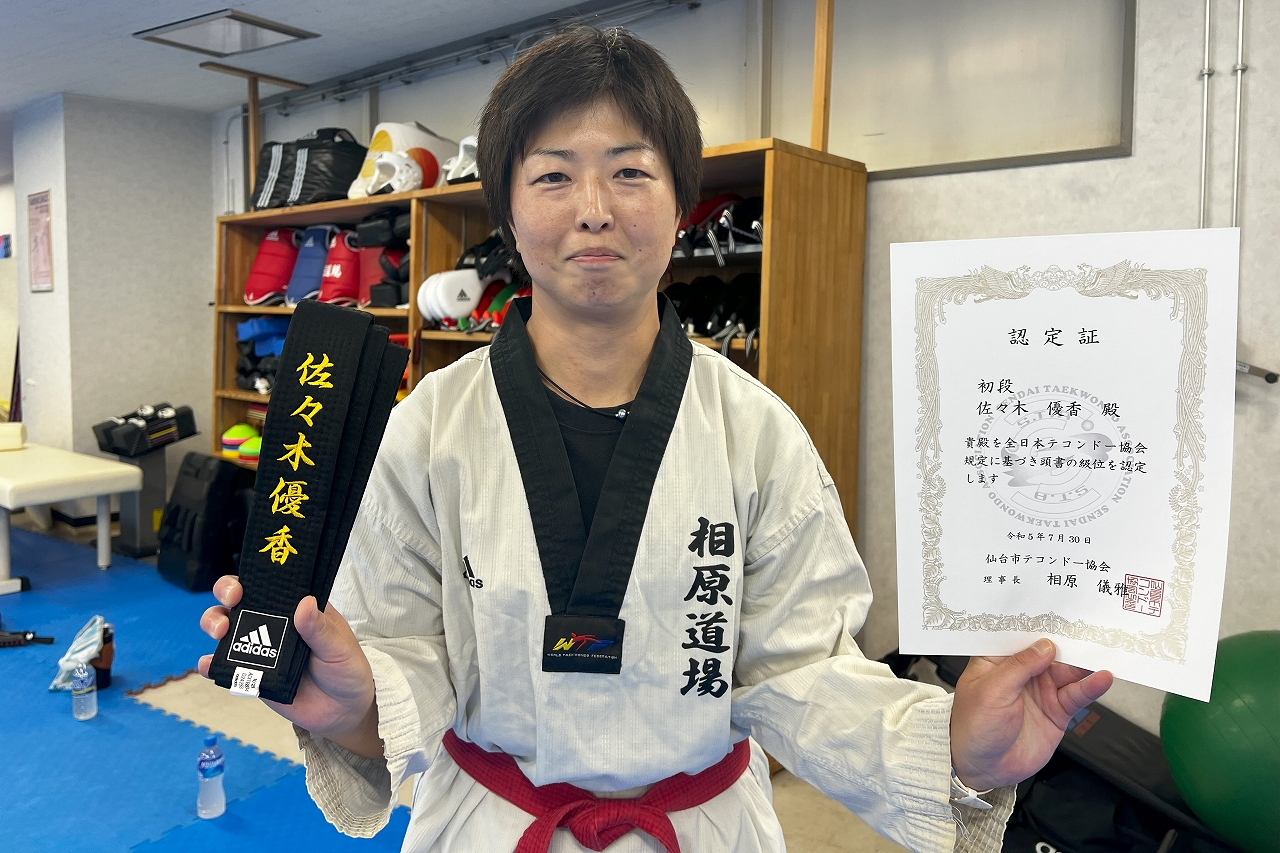 佐々木優香
adidas
adidas
相原道場
WORLD TAEKWONDO FEDERATION
認定証
初段
佐々木 優香 殿
貴殿を全日本テコンドー協会
規定に基づき頭書の級位を認定
します
SENDAI TAEKWONDO ASSOCIATION SENDAI TAEKWONDO ASSOCIATION
S.T.A
令和5年7月30日
仙台市テコンドー協会
理事長 相原 儀雅